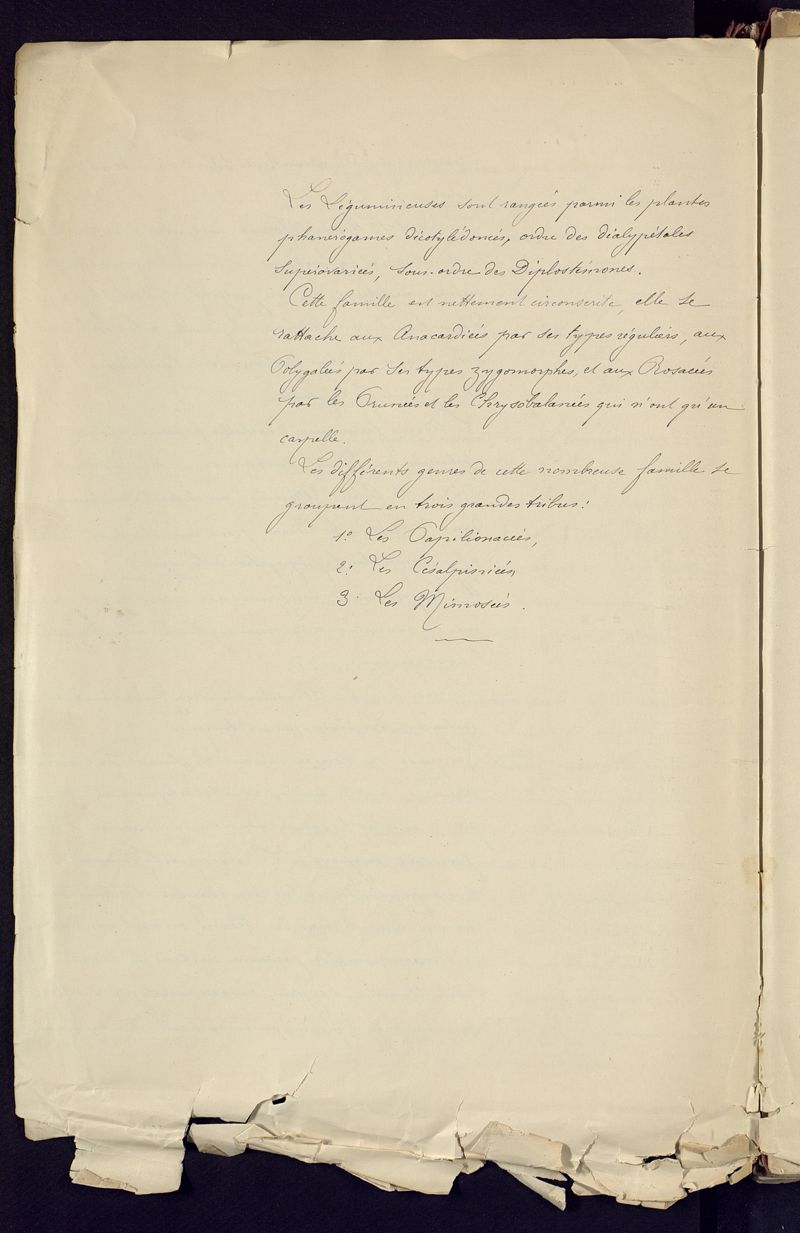 Les Légumineuses sont rangées parmi les plantes
phanérogames dicotylédonées, ordre des dialypétales
supérovariées, sous-ordre des Diplostémones.
Cette famille est nettement circonscrite, elle se
rattache aux Anacardiées par ses types réguliers, aux
Polygalées par ses types zygomorphes, et aux Rosacées
par les Prunées et les Chrysobalanées qui n'ont qu'un
carpelle.
Les différents genres de cette nombreuse famille se
groupent en trois grandes tribus :
1º Les Papilionacées,
2º Les Césalpiniées,
3º Les Mimosées.